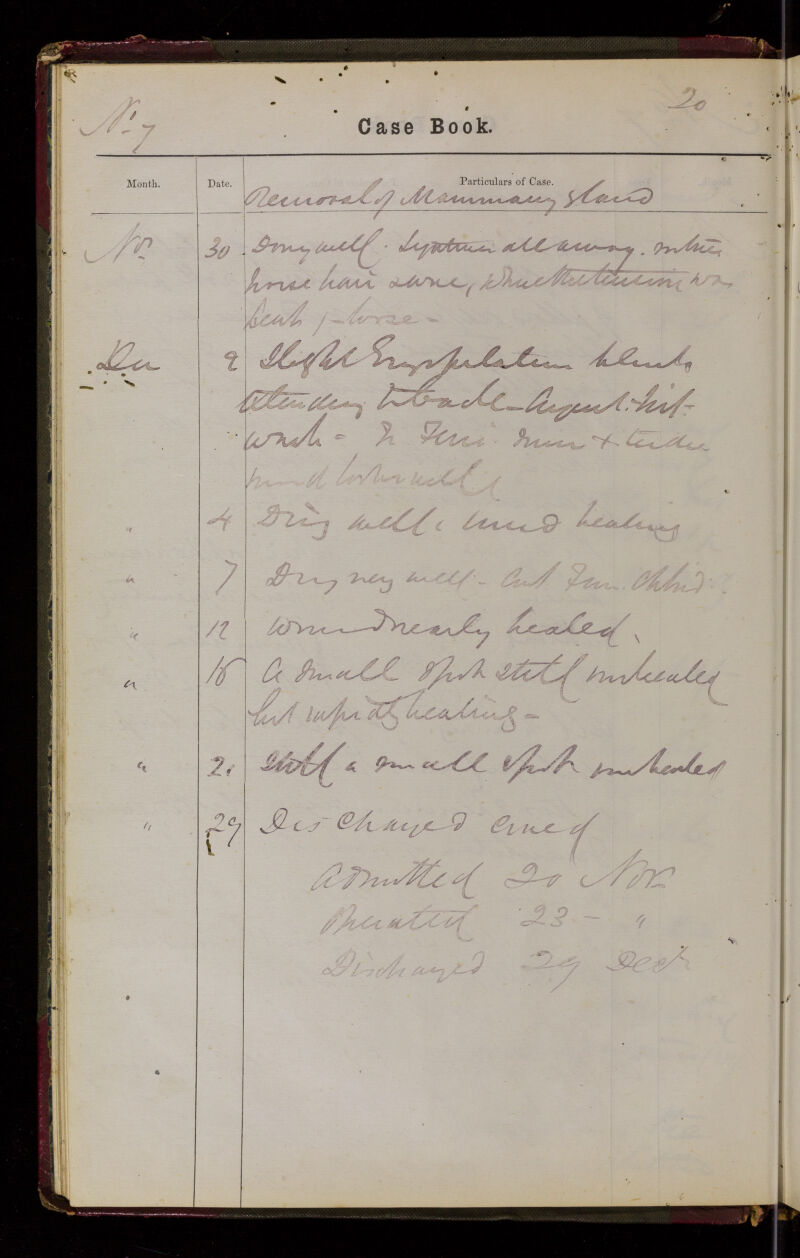 No 7
20
Case Book.
Month. Date. Particulars of Case.
Removal of Mammary Gland
Nov 30 Doing well. Ligatures all away.
horse hair
loose -
Dec 2 Slight Erysipelatous blush
extending to back - Argent. Nit.
wash -
looks well
" 4 Doing well & wound healing
" 7 Doing very well -
" 12 Wound nearly healed.
" 18 A small spot still unhealed
but rapidly healing -
" 21 Still a small spot unhealed
" 29 Discharged cured
Admitted 20 Nov
Operated 23 - "
Discharged 29 Dec